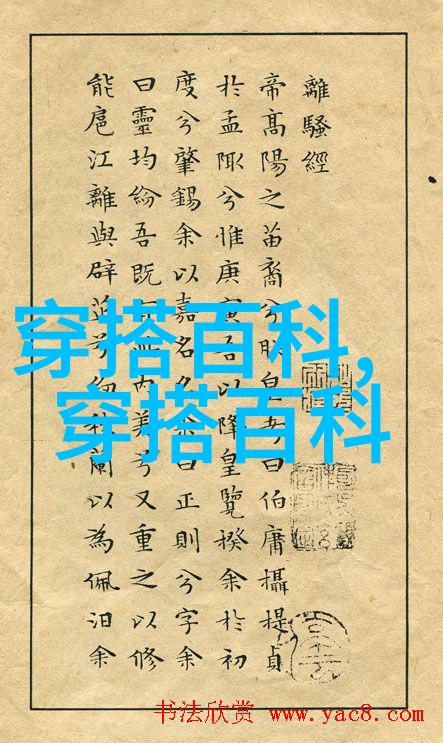 離騷經
帝高陽之苗裔兮朕皇考曰伯庸攝提貞
於孟陬兮惟庚寅吾以降皇覽揆余於初
度兮肇錫余以嘉名名余曰正則兮字余
曰靈均紛吾既內美兮又重之以修
能扈江離與辟芷兮紉秋蘭以為佩汨余
穿搭百科,
穿搭百科
书法欣赏 www.yac8.com